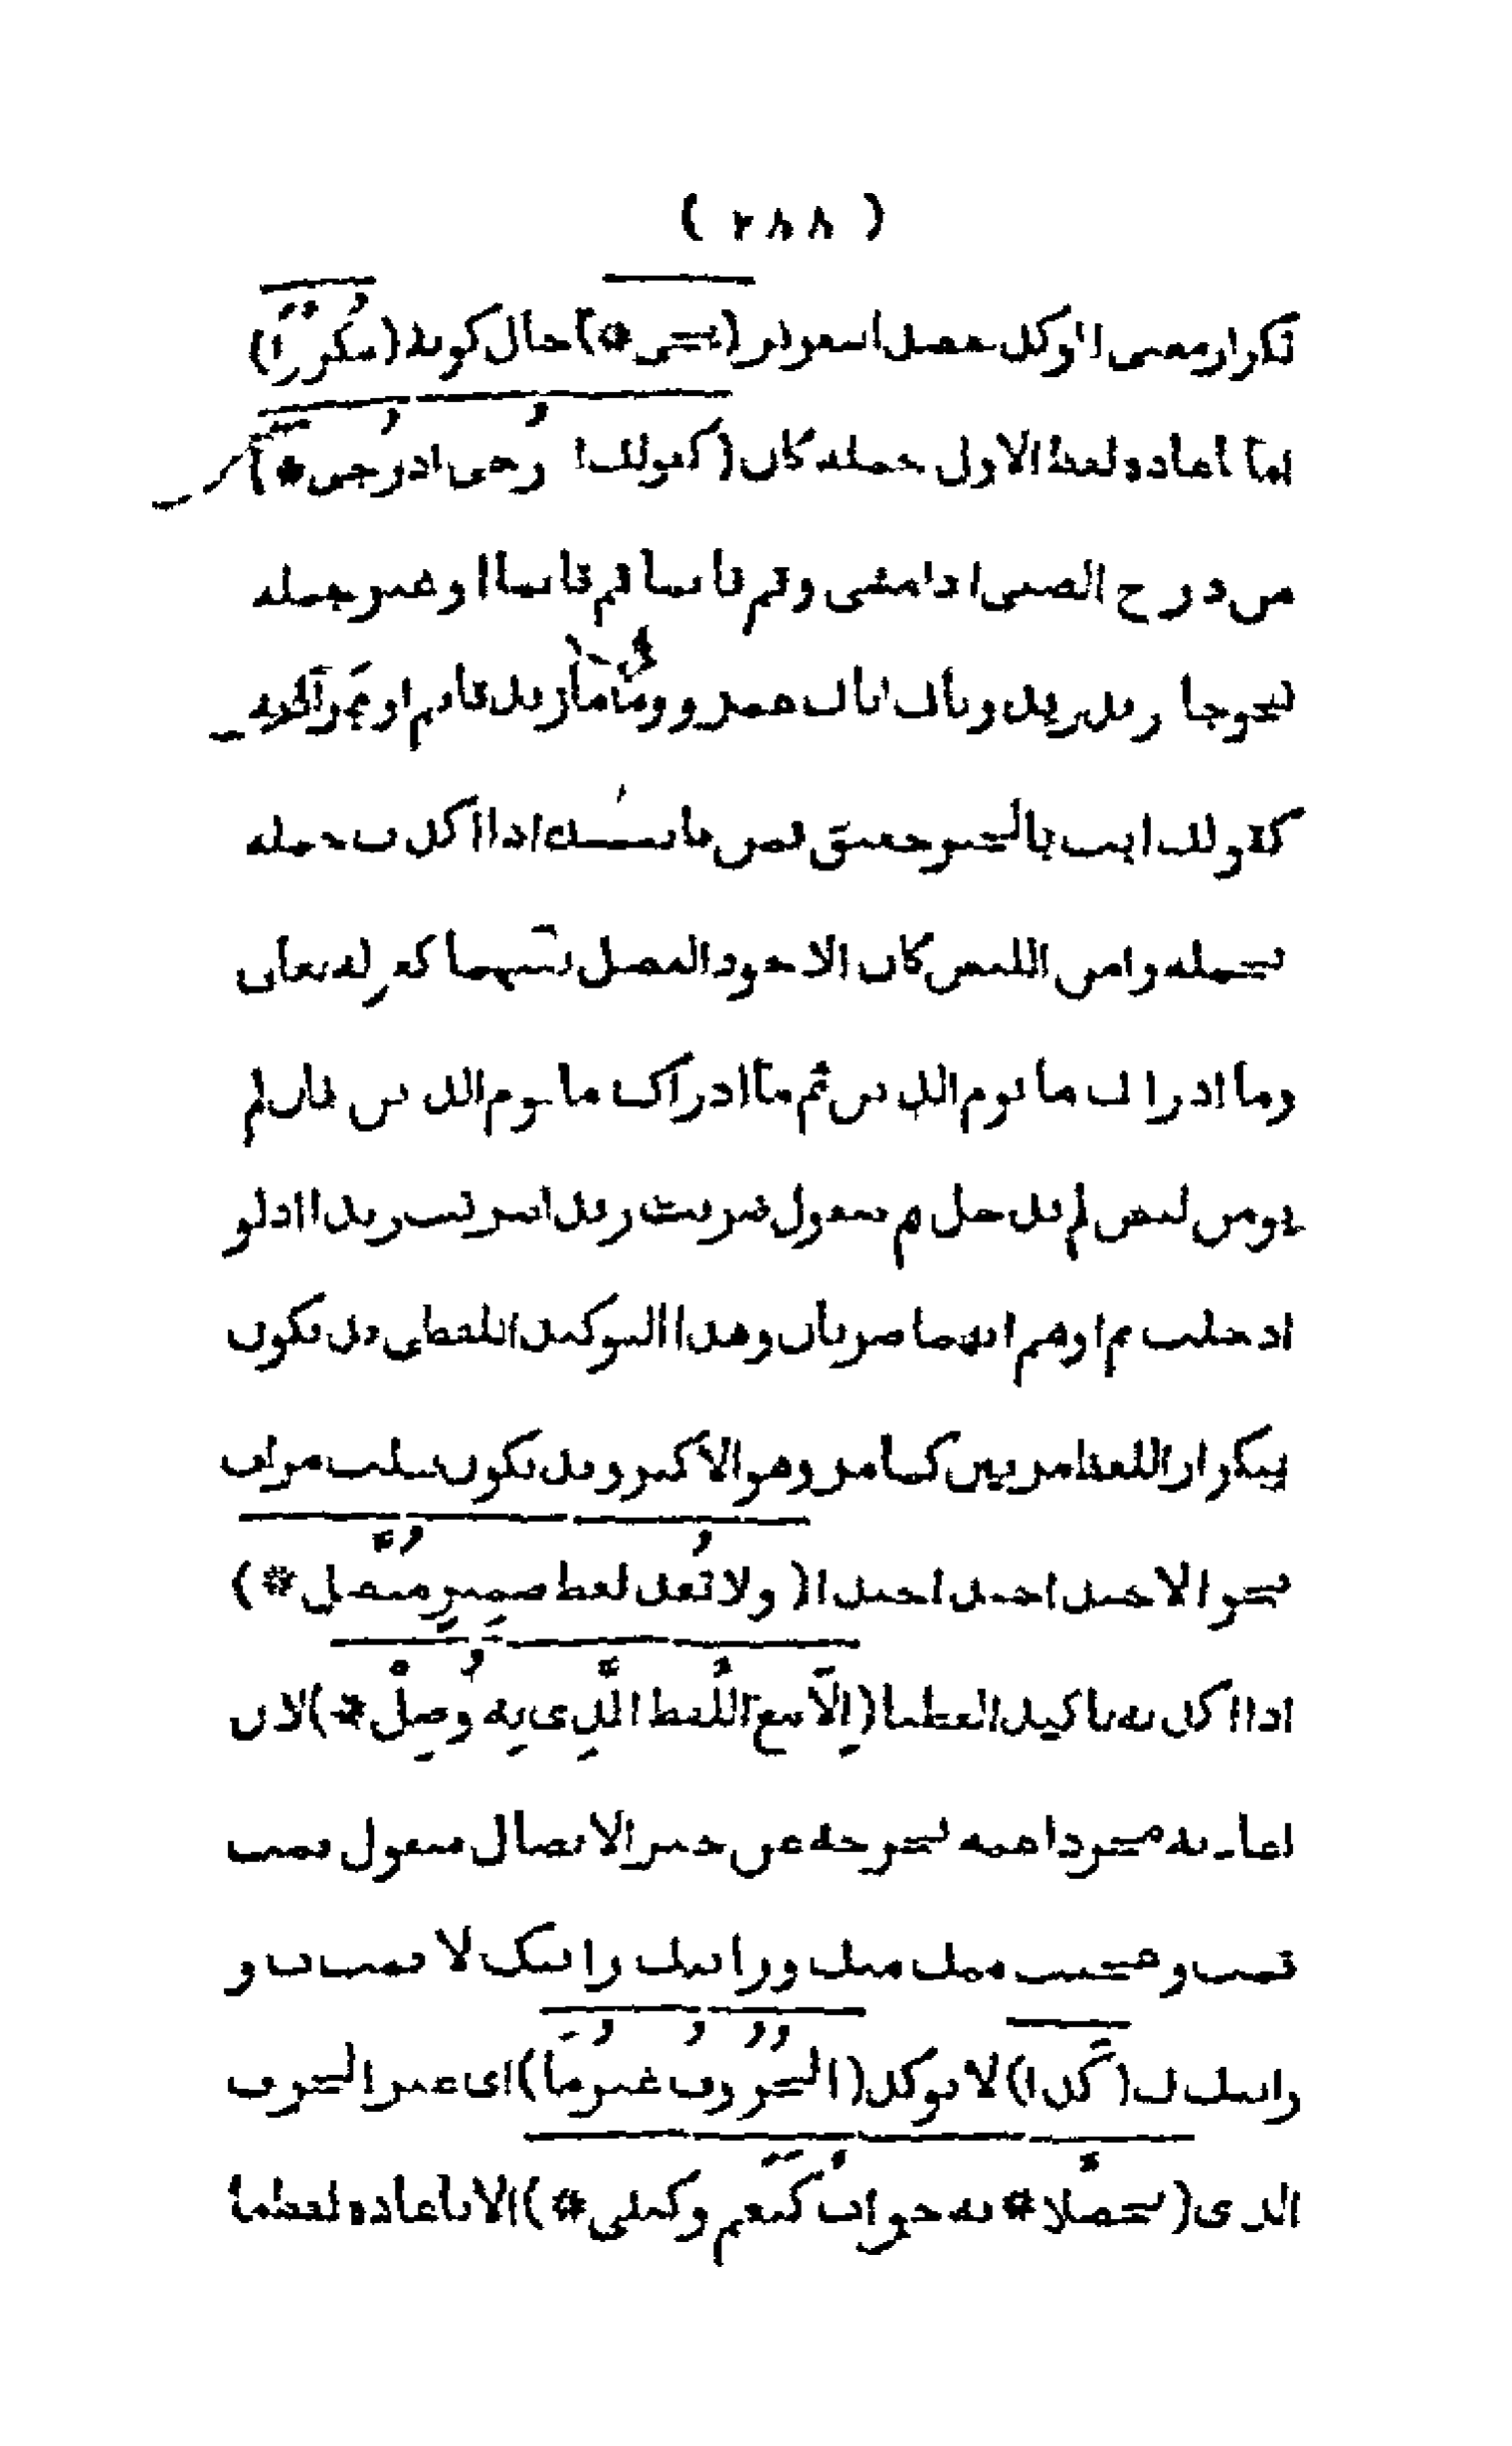 ( ٢٨٨ )
تكرار معنى المؤكد بعضد اسعرابه (يجى *) حال كونه (مُكَرَّرًا)
اما باعاده لفظ الاول جمله كان (كقولك ادرُجى ادرُجى *)
من درج الصبى اذا مشى وقم قائما قم قائما او غير جمله
نحو جا زيد زيد واتاك اتاك عمرو وما ما زيد قايم او بمرادفه
كقولك انت بالخير حقيق قمن ما اذا اكدت جمله
بجمله وامن اللبس كان الاجود الفصل بثم بينهما كقوله تعالى
وما ادراك ما يوم الدين ثم ما ادراك ما يوم الدين فان لم
يومن لبس لم تدخل ثم تقول ضربت زيدا ضربت زيدا اذ لو
ادخلت ثم اوهم انهما ضربان وهذا التوكيد اللفظى قد يكون
بتكرار اللفظ مرتين كما مر وهو الاكثر وقد يكون بثلث مرات
نحو الا حبذا حبذا حبذا (ولا تُعِد لفظ ضميرٍ متَّصل *)
اذا اكد به تاكيدا لفظيا (إِلَّا مع اللَّفظ الَّذِى بِهِ وُصِلْ *) لان
اعادته مجردا عنه تخرجه عن حيز الاتصال فتقول قمت
قمت وعجبت منك منك ورايتك رايتك لا قمت ت و
رايتك ك (كَذا) لا توكد (الحُرُوفُ غيرُ مَا) اى غير الحروف
الذى (تحصَّلا * به جوابٌ كَنَعم وكبلى *) الا باعاده لفظها